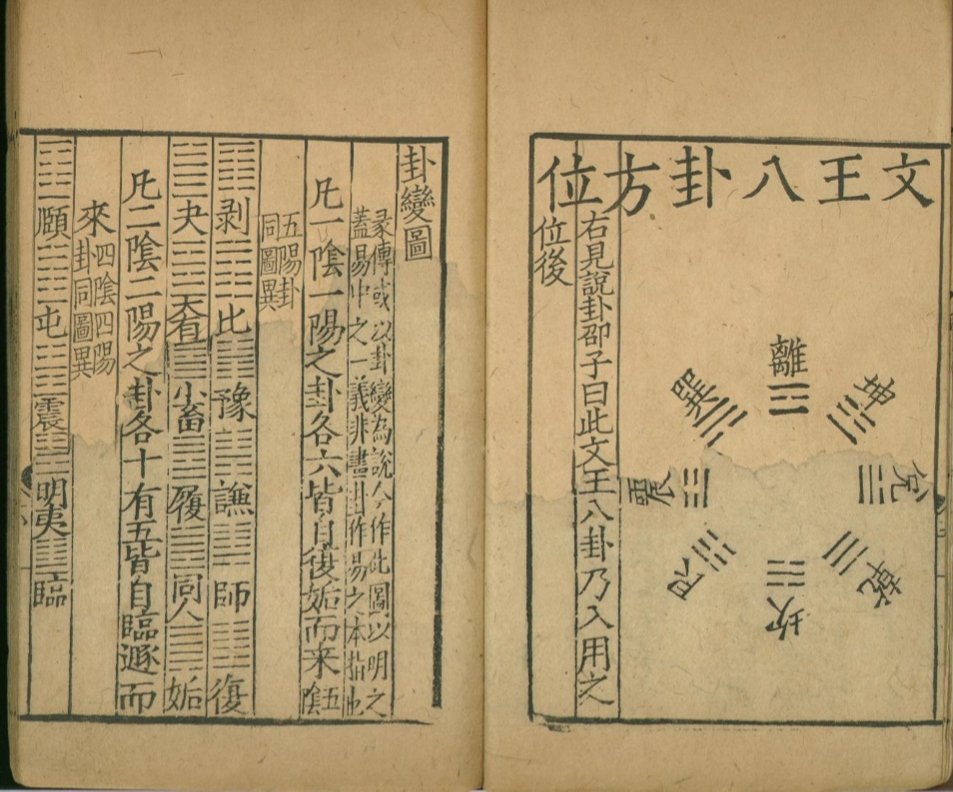 文王八卦方位
離
坤
兌
乾
坎
艮
震
巽
右見說卦卲子曰此文王八卦乃入用之
位後
卦變圖
彖傳或以卦變為說今作此圖以明之
蓋易中之一義非畫卦作易之本指也
凡一陰一陽之卦各六皆自復姤而来五陰
五陽卦
同圖異
剥 比 豫 謙 師 復
夬 大有 小畜 履 同人 姤
凡二陰二陽之卦各十有五皆自臨遯而
來四陰四陽
卦同圖異
頤 屯 震 明夷 臨